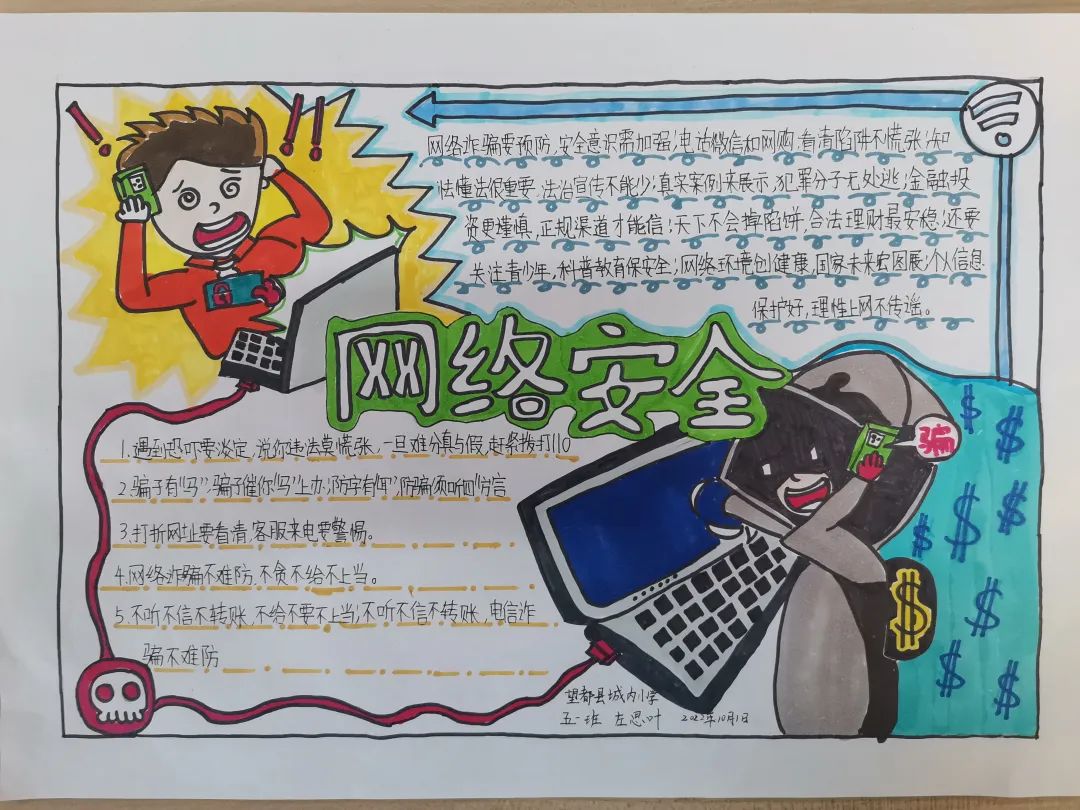 网络诈骗要预防,安全意识需加强;电话微信和网购,看清陷阱不慌张;知
法懂法很重要,法治宣传不能少;真实案例来展示,犯罪分子无处逃;金融投
资更谨慎,正规渠道才能信;天下不会掉陷饼,合法理财最安稳;还要
关注青少年,科普教育保安全;网络环境创健康,国家未来宏图展;个人信息
保护好,理性上网不传谣。
网络安全
骗
1.遇到恐吓要淡定,说你违法莫慌张,一旦难分真与假,赶紧拨打110
2.骗子有"马",骗子催你"马"上办;防字有"耳",防骗须听四方言
3.打折网址要看清,客服来电要警惕。
4.网络诈骗不难防,不贪不给不上当。
5.不听不信不转账,不给不要不上当;不听不信不转账,电信诈
骗不难防
望都县城内小学
五一班 左思叶 2022年10月1日
$ $ $ $ $ $ $ $ $ $